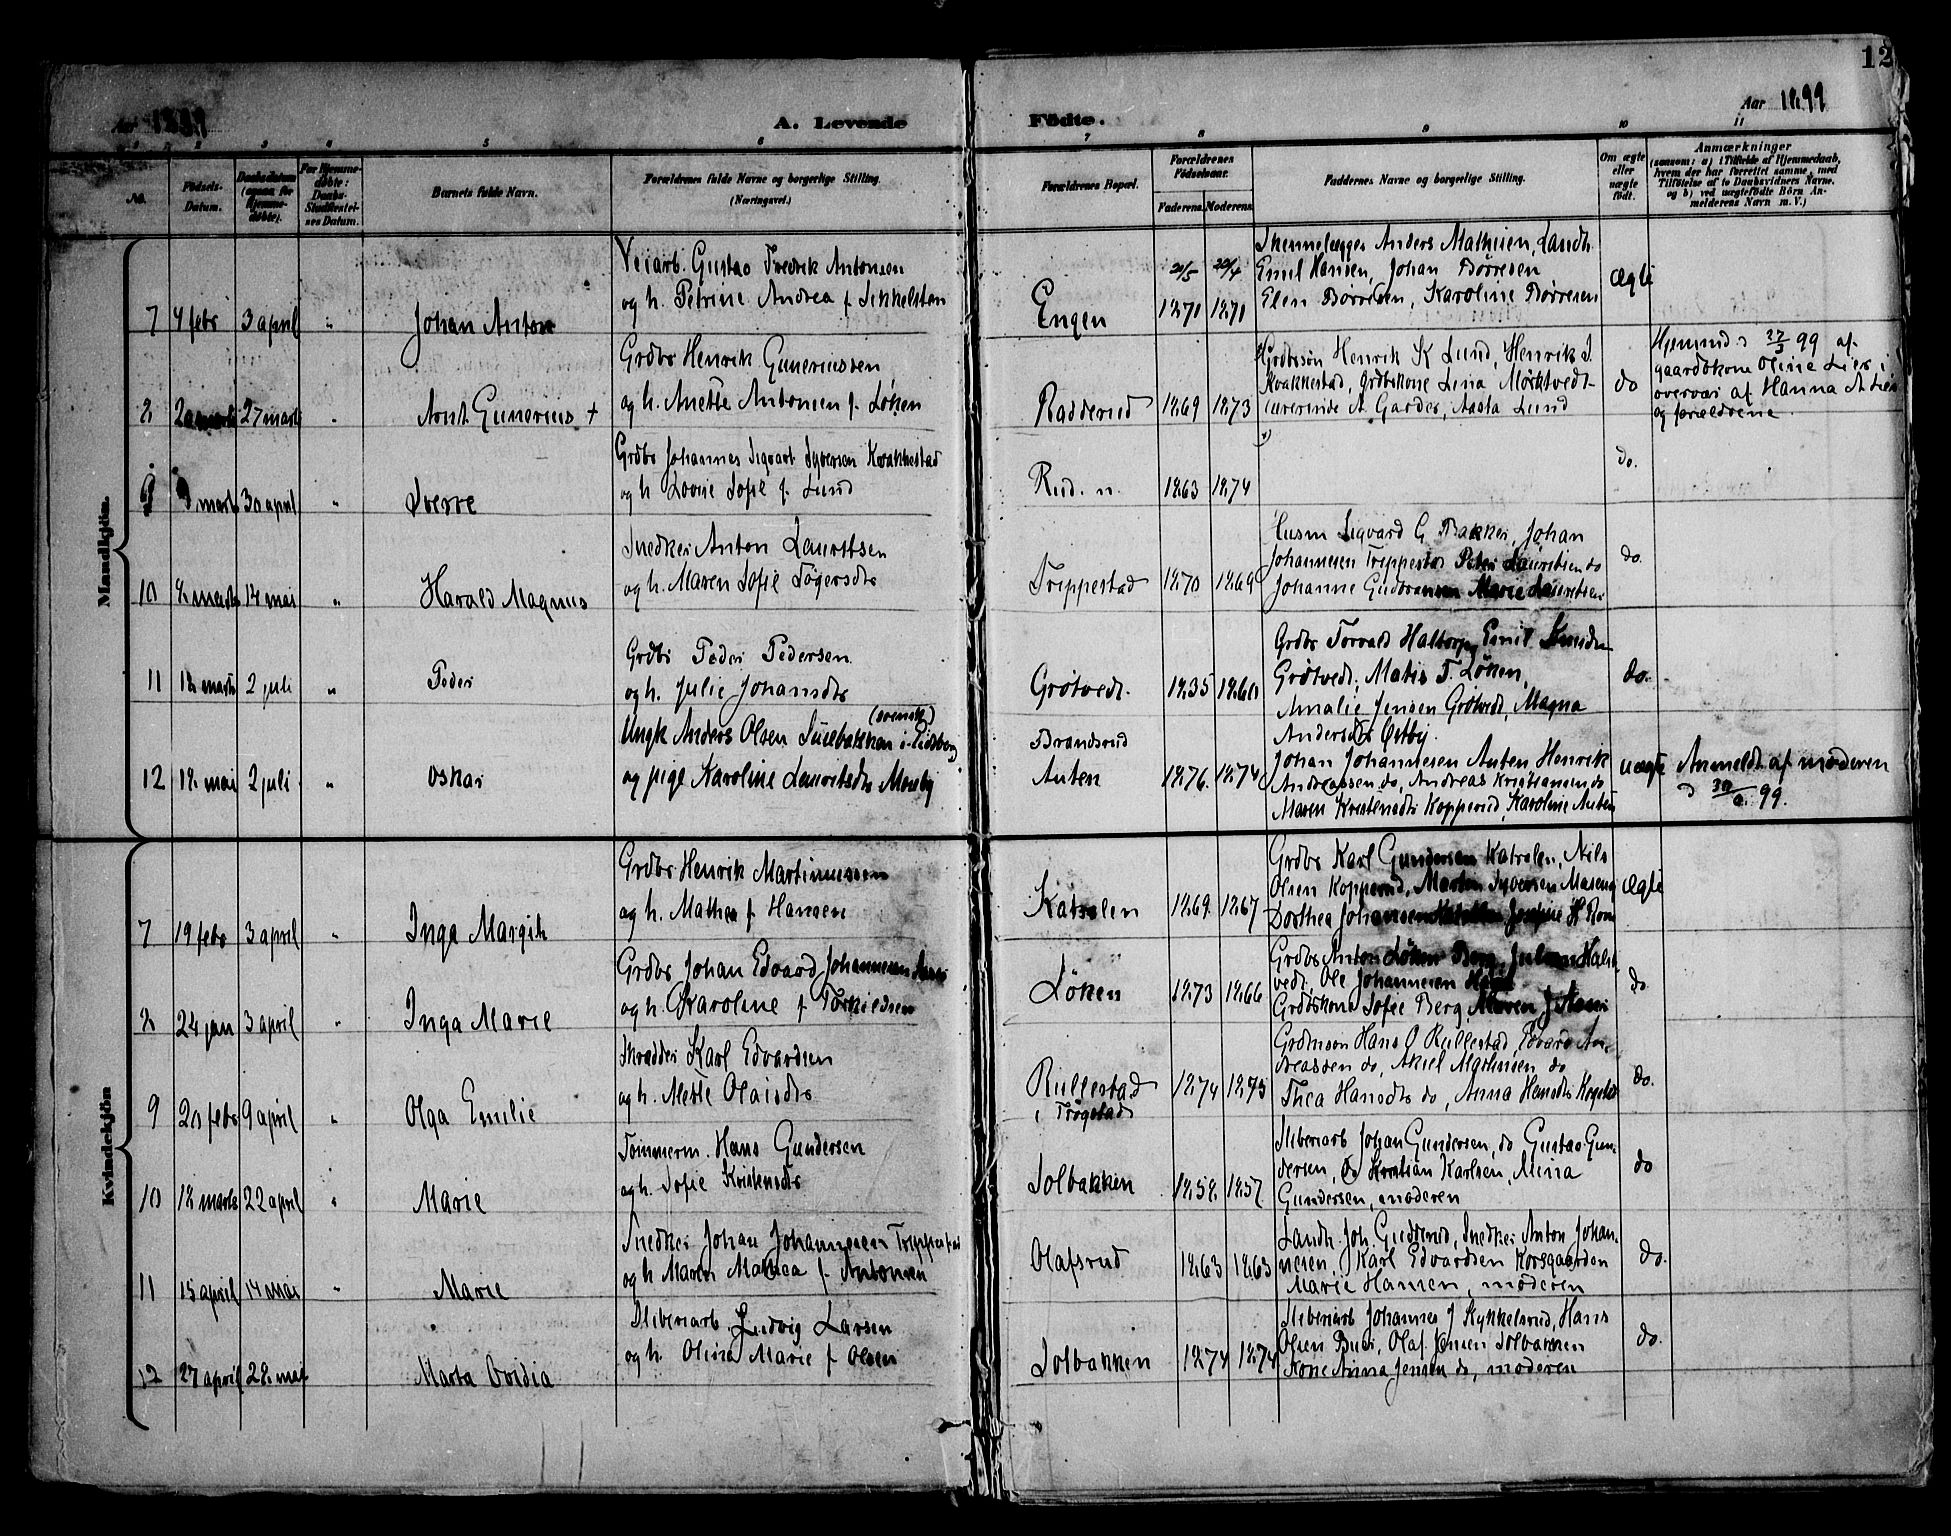 12
Aar 1899
A. Levende
Fødte.
Aar 1899
1 2 3 4 5 6 7 8 9 10 11
No.
Fødsels-
Datum.
Daabsdatum
(ogsaa for
Hjemme-
døbte).
For Hjemme-
døbte:
Daabs-
Stadfæstel-
ses Datum.
Barnets fulde Navn.
Forældrenes fulde Navne og borgerlige Stilling.
(Næringsvei.)
Forældrenes Bopæl.
Forældrenes
Fødselsaar.
Faderens. Moderens.
Faddernes Navne og borgerlige Stilling.
Om ægte
eller
uægte
født.
Anmærkninger
(saasom: a) i Tilfælde af Hjemmedaab,
hvem der har forrettet samme, med
Tilføielse af to Daabsvidners Navne,
og b) ved uægtefødte Børn An-
melderens Navn m. V.)
Mandkjøn.
7 4 febr 3 april " Johan Anton
Veiarb. Gustav Fredrik Antonsen
og h. Petrine Andrea f.
Engen
1871 1871
Anders Mathisen, Landh.
Emil Hansen, Johan Børresen
Elen Børresen, Karoline Børresen
ægte
8 27 marts " Arnt Gunerius +
Grdbr Henrik Guneriussen
og h. Anette Antonsen f. Løken
Radderud
1869 1873
Henrik K Lund, Henrik S.
Kvakkestad, Grdbrkone Lina Mørktvedt
A Garder, Aasta Lund
do
Hjemmed. 27/3 99 af
gaardbkone Oline Lier i
overvær af Hanna A Lier
og forældrene.
9 marts 30 april " Sverre
Grdbr Johannes Sigvart Syversen Kvakkestad
og h Lovise Sofie f. Lund
Rud. n.
1863 1874
do.
10 8 marts 14 mai " Harald Magnus
Snedker Anton Lauritsen
og h. Maren Sofie
Treppestad
1870 1869
Husm Sigvard G Bakker, Johan
Johannesen Treppestad Peter Lauritsen do
Johanne Gudbransen Marie Lauritsen
do.
11 18 marts 2 juli " Peder
Grdbr Peder Pedersen
og h. Julie Johansdtr
Grøtvedt.
1835 1860
Grdbr Torvald Halborg Emil
Grøtvedt, Matis T. Løken,
Amalie Jensen Grøtvedt, Magna
Andersdtr Østby.
do.
12 18 mai 2 juli " Oskar
(svensk)
Ungk Anders Olsen
og pige Karoline Lauritsdtr Moseby
Brandsrud
Auten
1876. 1874
Johan Johannesen Auten Henrik
Andreassen do, Andreas Kristiansen do
Maren Kristensdtr Kopperud, Karoline Auten
uægte
Anmeldt af moderen
d 30/6 99.
Kvindekjøn
7 19 febr 3 april " Inga Margith
Grdbr Henrik Martinussen
og h. Mathea f. Hansen
Katralen
1869. 1867
Grdbr Karl Gundersen Katralen, Nils
Olsen Kopperud, Morten Syversen Maseng
Dorthea Johansen
ægte
8 24 jan 3 april " Inga Marie
Grdbr Johan Edvard Johannesen
og h. Karoline f Torkildsen
Løken
1873 1866
Grdbr Anton Løken Berg,
vedt, Ole Johannesen
Grdbrkone Sofie Berg Maren J
do
9 20 febr 9 april " Olga Emilie
Skrædder Karl Edvardsen
og h. Mette Olaisdtr
Rullestad
i Trøgstad
1874 1875
Hans O Rullestad, Edvard An-
dreassen do, Aksel Mathisen do
Thea Hansdtr do, Anna Hansdtr
do.
10 18 marts 22 april " Marie
Tømmerm. Hans Gundersen
og h. Sofie Kristensdtr
Solbakken
1858. 1857.
Sliberiarb Johan Gundersen, do Gustav Gun-
dersen, do Kristian Karlsen, Mina
Gundersen, moderen
do
11 15 april 14 mai " Marie
Snedker Johan Johannesen
og h Maren Mathea f. Antonsen
Olafsrud
1863 1863
Landh. Joh Gudderud, Snedker Anton Johan-
nesen, Karl Edvardsen Korsgaarden
Marie Hansen, moderen
do.
12 27 april 28. mai Marta Ovidia
Sliberiarb. Ludvig Larsen
og h. Olina Marie f Olsen
Solbakken
1874 1874
Sliberiarb Johannes J Kykkelsrud, Hans
Olsen Buer, Olaf Jensen Solbakken
Kone Anna Jensen do, moderen
do.